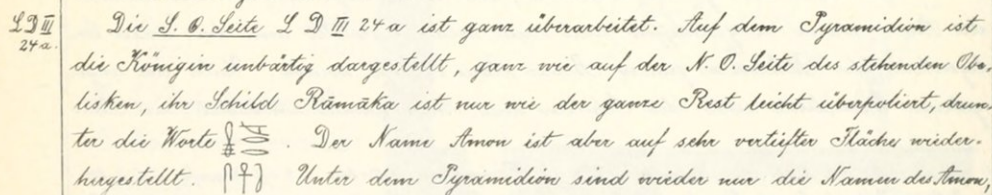 LD III 24a.
Die S. O. Seite L D III 24 a ist ganz überarbeitet. Auf dem Pyramidion ist
die Königin unbärtig dargestellt, ganz wie auf der N. O. Seite des stehenden Obe-
lisken, ihr Schild Rāmāka ist nur wie der ganze Rest leicht überpoliert, drun-
ter die Worte . Der Name Amon ist aber auf sehr vertiefter Fläche wieder-
hergestellt. Unter dem Pyramidion sind wieder nur die Namen des Amon,